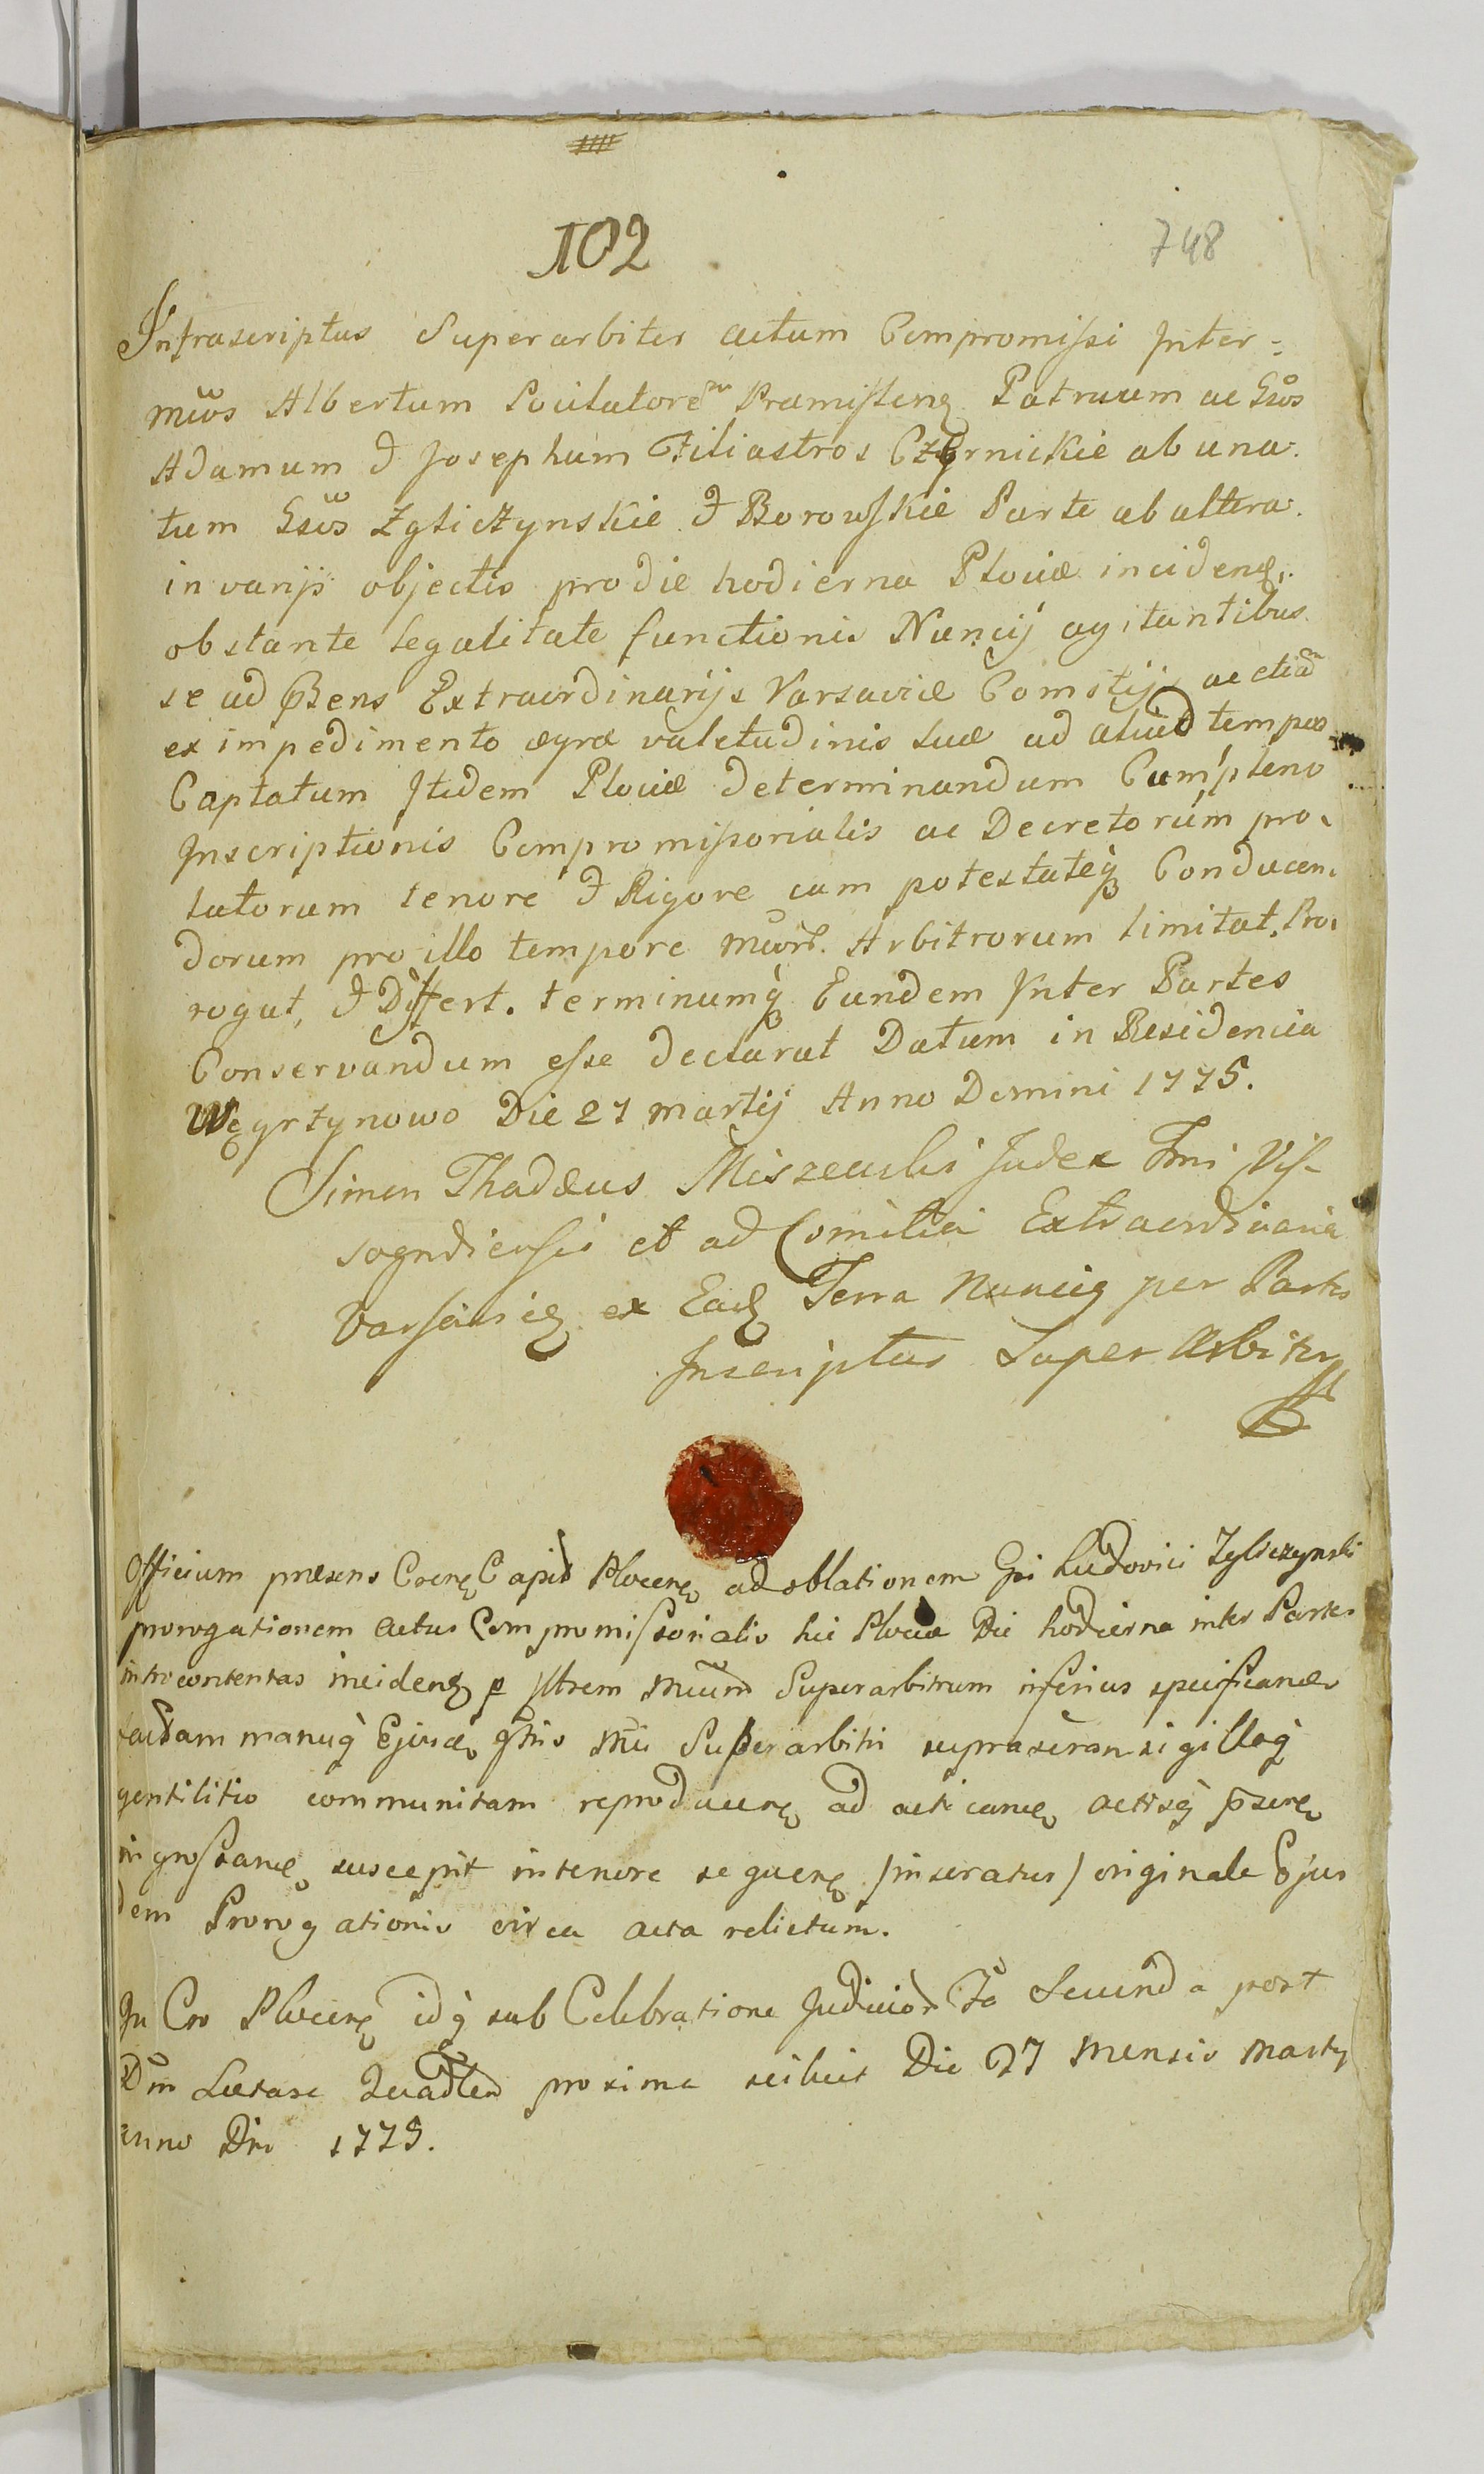 102
748
Infrascriptus Superarbiter actum Compromissi Inter=
mũos Albertum Pocilatorẽm Præmislens Patruum ac Gsõs
Adamum & Josephum Filiastros Czernickie ab una.
tum Gsõs Zgliczynskie & Borowskie Parte ab altera.
in varijs objectis pro die hodierna Plociæ incidens,
obstante legalitate functionis Nuncij agitantibus
se ad Psens Extraordinarijs Varsaviæ Comitijs ac etiam
ex impedimento ægræ valetudinis suæ ad aliud tempus
Captatum Itidem Plociæ determinandum Cum pleno
Inscriptionis Compromissorialis ac Decretorum pro
latorum tenore & Rigore cum potestateq Conducen
dorum pro illo tempore Arbitrorum limitat, Pro
rogat, & Differt. terminumq Eundem Inter Partes
Conservandum esse declarat Datum in Residencia
Węgrzynowo Die 27 martij Anno Domini 1775.
Simon Thadæus Miszewski Judex Tris Vis-
sogrodiensis et ad Comitia Extraordinaria
Varsaviæ ex Ead Terra Nuncig per Partes
Inscriptus Super Arbiter
Officium præsens Crens Capit Plocens ad oblationem Gsi Ludovici Zgliczynski
prorogationem actus Compromissorialis hic Plociæ Die hodierna inter Partes
introcontentas incidens p Iltrem Mcum Superarbitrum inferius specificand
factam manuq Ejusd Superarbitri sigilloq
gentilitio communitam reproducens ad acticand actisq pser
ingrossand suscepit in tenore sequens /inseratur/ originale Ejus
dem Prorogationis circa acta relictum.
In Cro Plocens idq sub Celebratione Judicior Fa Secunda post
Dnm Lætare Quadlem proxima scilicet Die 27 Mensis Martij
anno Dni 1775.